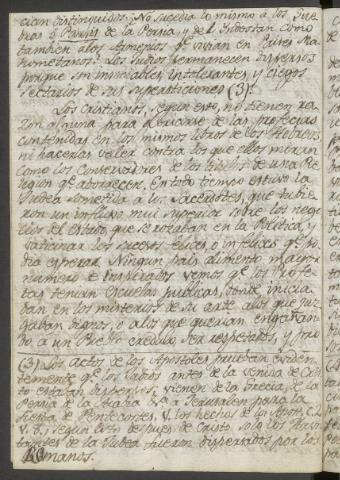 cian distinguidos. ¿No sucedia lo mismo à los Gue-
bras ó Parsis de la Persia, y de l Indostan como
tambien a los Armenios qe. viven en Paises Ma-
hometanos? Los Judios permanecen dispersos
porque son insociables, intolerantes, y ciegos
sectarios de sus supersticiones (3).
Los Cristianos, segun esto, no tienen ra-
zon alguna para de las profecias
contenidas en los mismos libros de los Hebreos
ni hacerlas valer contra los que ellos miran
como los Conservadores de los titulos de una Re-
ligion qe. aborrecen. En todo tiempo estuvo la
Judea sometida a los Sacerdotes, que tubie-
ron un influxo mui superior sobre los nego-
cios del Estado, que se en la Politica, y
vaticinar los sucesos felices, o infelices qe. po-
dia esperar. Ningun pais alimentó mayor
numero de Inspirados vemos qe. los Profe-
tas tenian Escuelas publicas, donde inicia-
ban en los misterios de su arte a los que juz-
gaban dignos, o a los que querian engañan-
do a un Pueblo credulo ser respetados, y
(3) Los Actos de los Apostoles prueban eviden-
temente qe. los Judios antes de la venida de Cris-
to estaban dispersos; vienen de la Grecia, de la
Persia de la Arabia &a. à Jerusalen para la
fiesta de Pentecostes, V. los hechos de los Apost. C. 2.
v. 8. Segun esto despues de Cristo solo los Havi-
tantes de la Judea fueron dispersados por los
Romanos.